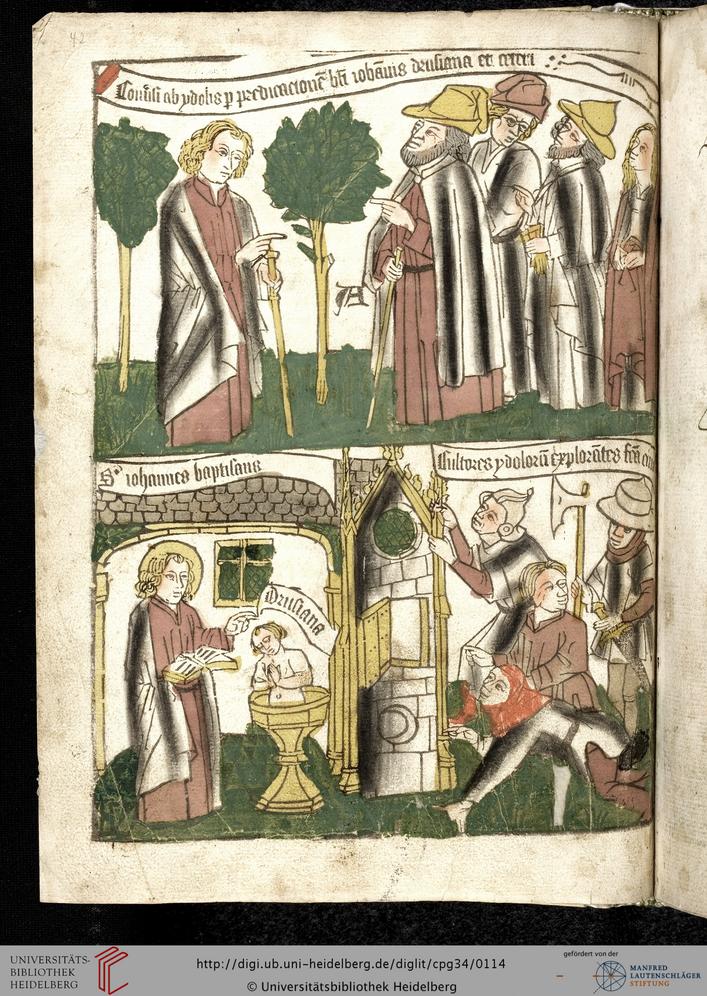 42
Conũsi ab ydolis p predicacionē bṫi iohānis drusiana et ceteri
A
S' iohannes baptisans
Drusiana
Cultores ydolorū explorātes fcā
UNIVERSITÄTS-
BIBLIOTHEK
HEIDELBERG
http://digi.ub.uni-heidelberg.de/diglit/cpg34/0114
© Universitätsbibliothek Heidelberg
gefördert von der
MANFRED
LAUTENSCHLÄGER
STIFTUNG